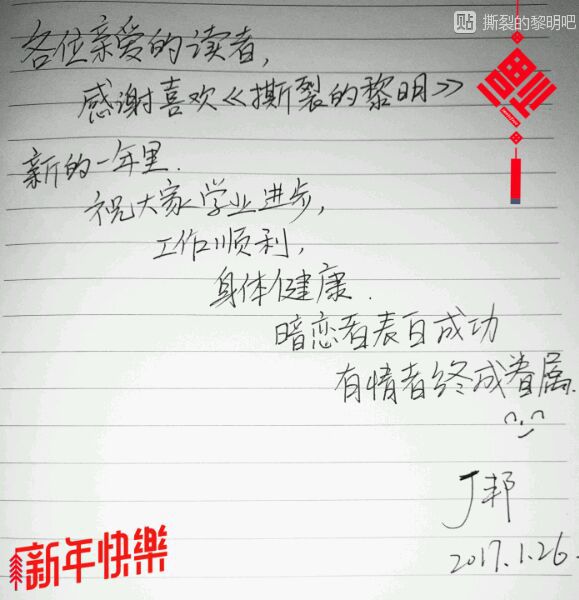 贴 撕裂的黎明吧
各位亲爱的读者,
感谢喜欢《撕裂的黎明》
福
新的一年里.
祝大家学业进步,
工作顺利,
身体健康.
暗恋者表白成功
有情者终成眷属.
J邦
2017.1.26.
新年快樂